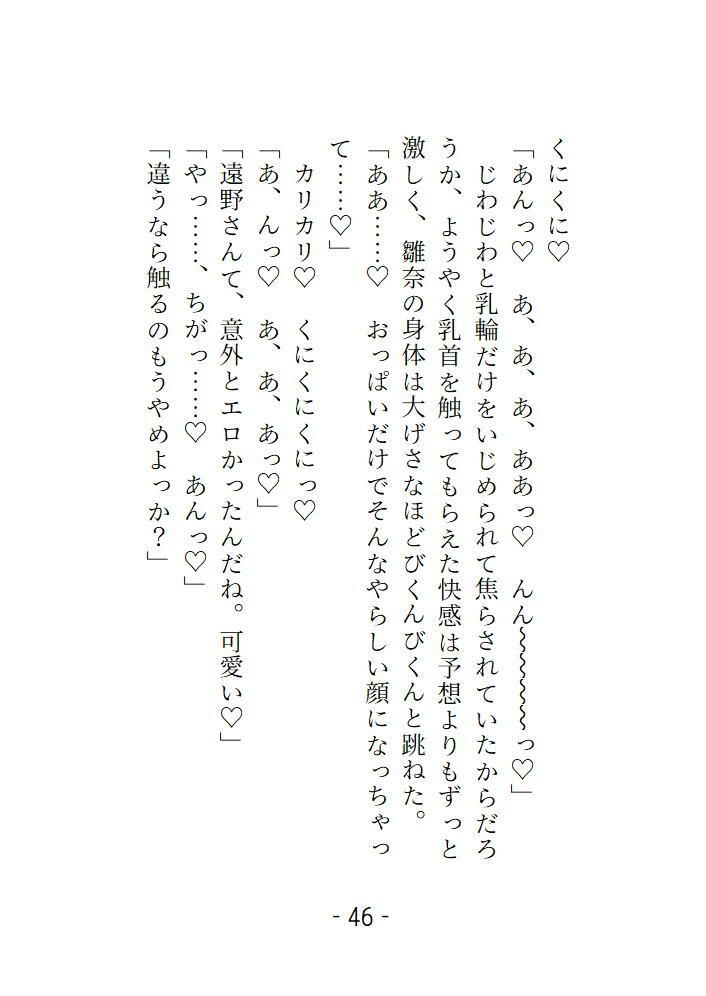 くにくに♡
「あんっ♡　あ、あ、あ、ああっ♡　んん～～～～～っ♡」
　じわじわと乳輪だけをいじめられて焦らされていたからだろ
うか、ようやく乳首を触ってもらえた快感は予想よりもずっと
激しく、雛奈の身体は大げさなほどびくんびくんと跳ねた。
「ああ……♡　おっぱいだけでそんなやらしい顔になっちゃっ
て……♡」
　カリカリ♡　くにくにくにっ♡
「あ、んっ♡　あ、あ、あっ♡」
「遠野さんて、意外とエロかったんだね。可愛い♡」
「やっ……、ちがっ……♡　あんっ♡」
「違うなら触るのもうやめよっか？」
- 46 -